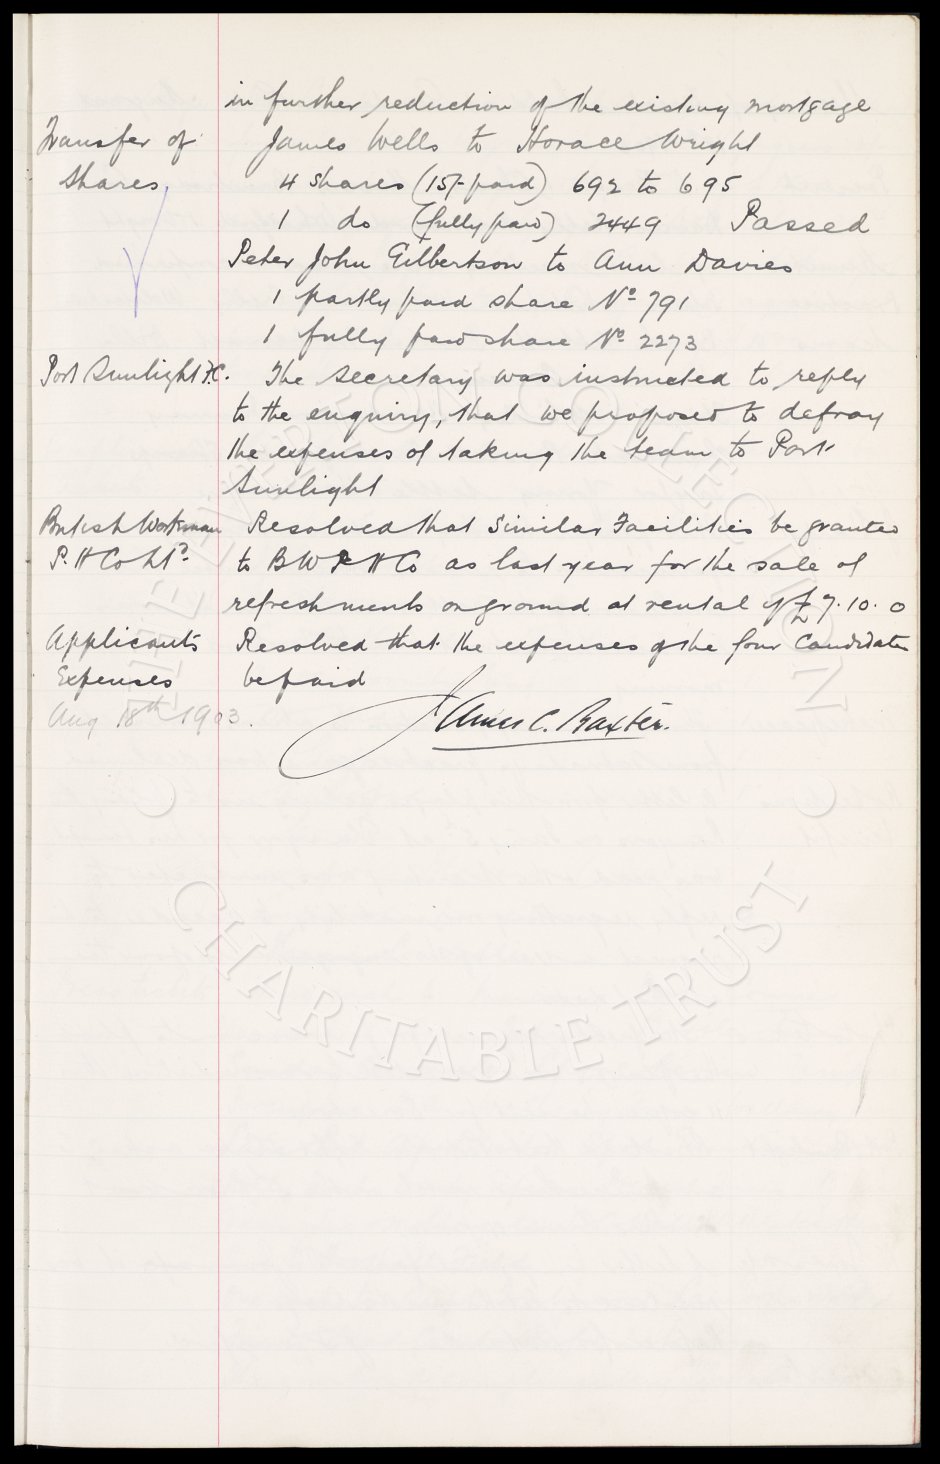 in further reduction of the existing mortgage
Transfer of James Wells to Horace Wright
Shares 4 shares (15/- paid) 692 to 695
1 do (fully paid) 2449 Passed
Peter John Gilbertson to Ann Davies
1 partly paid share No 791
1 fully paid share No 2273
Port Sunlight F.C. The Secretary was instructed to reply
to the enquiry, that we proposed to defray
the expenses of taking the team to Port
Sunlight
British Workman Resolved that Similar Facilities be granted
P. H Co Ltd. to B W P H Co as last year for the sale of
refreshments on ground at rental of £7.10.0
Applicants Resolved that the expenses of the four Candidates
Expenses be paid
Aug 18th 1903. James C. Baxter.
THE EVERTON COLLECTION
CHARITABLE TRUST